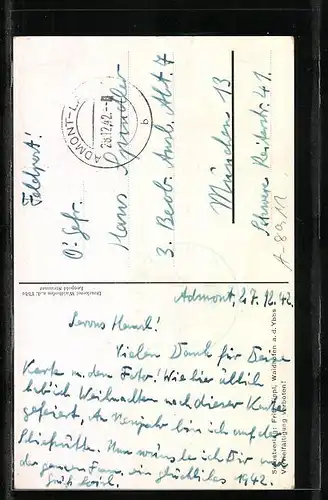 Feldpost!
ADMONT-
28.12.42.
b
O'Gefr.
Hans Spindler
3. Beob. Ausb. Abt. 7
München 13
Schwere Reiterstr. 41.
A-8911
Druckerei Waidhofen a.d. Ybbs
Leopold Stummer
Admont, 27.12.42.
Servus Hansl!
Vielen Dank für Deine
Karte m. dem Foto! Wie hier üblich
hab ich Weihnachten nach dieser Karte
gefeiert, An Neujahr bin ich auf der
Nun wünsche ich Dir u.
der ganzen Fam. ein glückliches 1942.
Gruß
Waidhofen a. d. Ybbs
Vervielfältigung verboten!